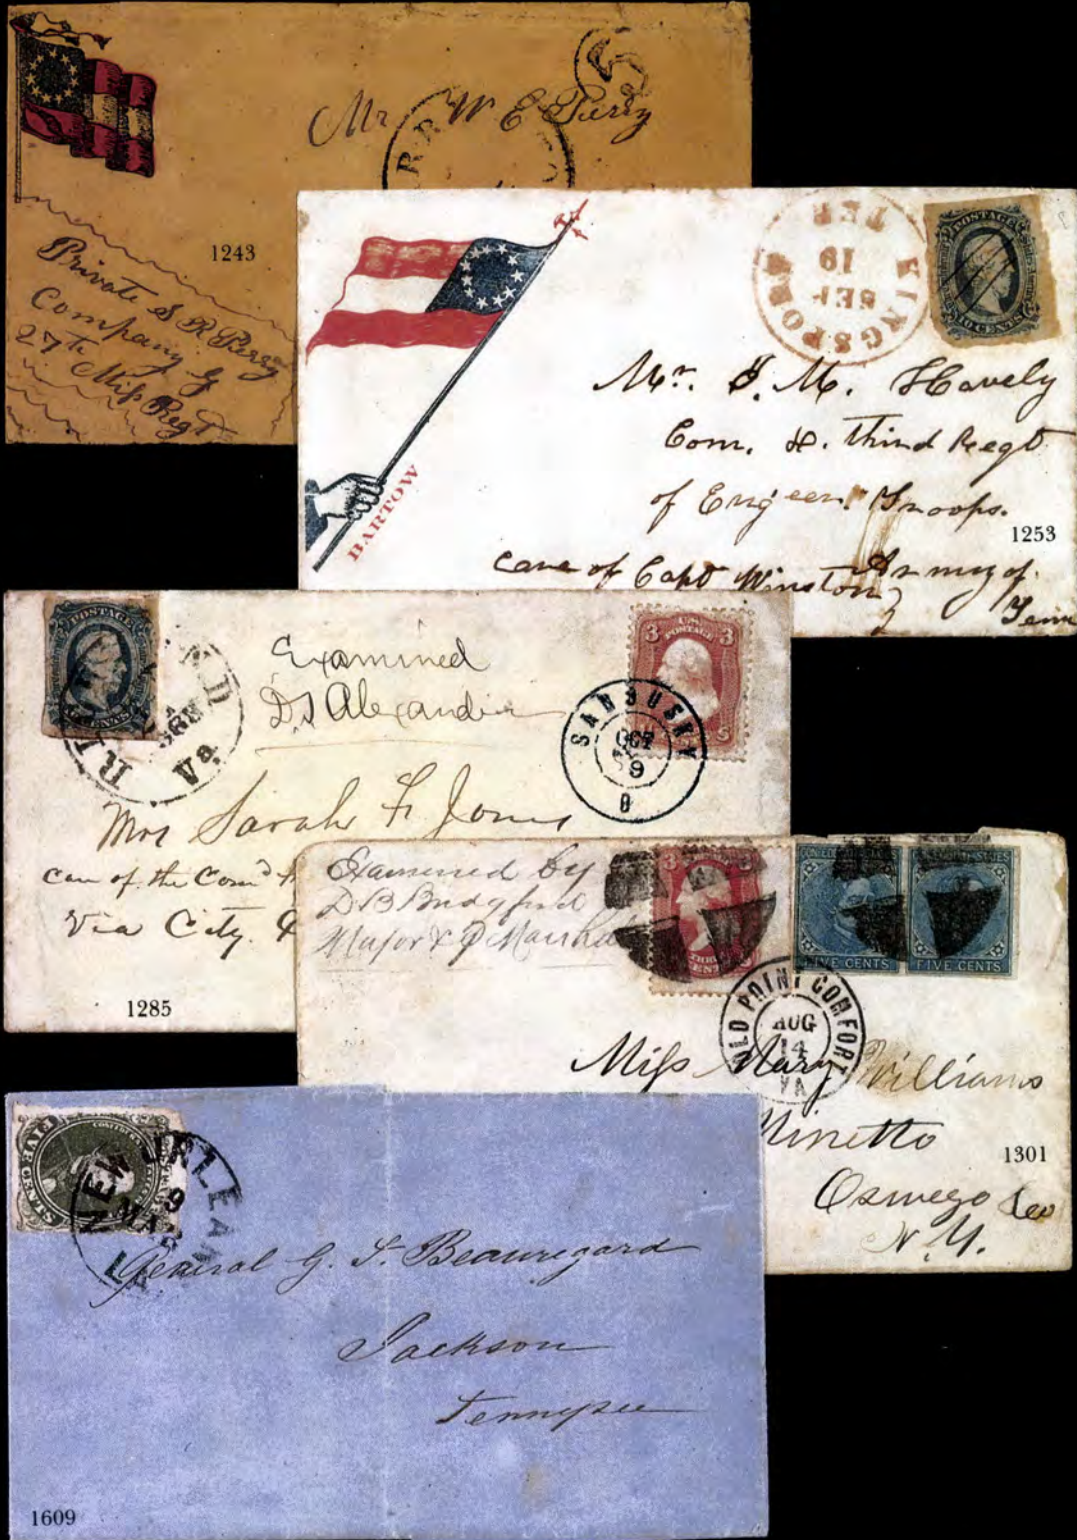 Mr W E Perry
5
R R
1243
Private S R Perry
Company G
27th Miss Regt
KINGSPORT TEN
SEP
19
POSTAGE
TEN CENTS
Mr. J. M. Havely
Com. H. third Regt
of Engeer Troops.
care of Capt Winston
Army of
Tenn
BARTOW
1253
POSTAGE
TEN CENTS
Va
Examined
D S Alexander
3 3
U.S.
POSTAGE
SANDUSKY
OCT
9
O
Mrs Sarah F. Jones
care of the Com'd
Via City
1285
Examined by
D B Bridgford
Major & P Marshal
3
FIVE CENTS
FIVE CENTS
OLD POINT COMFORT
AUG
14
VA
Miss Mary Williams
Minetto
Oswego Co
N.Y.
1301
FIVE CENTS
NEW ORLEANS
9
MAR
LA
General G. T. Beauregard
Jackson
Tennessee
1609